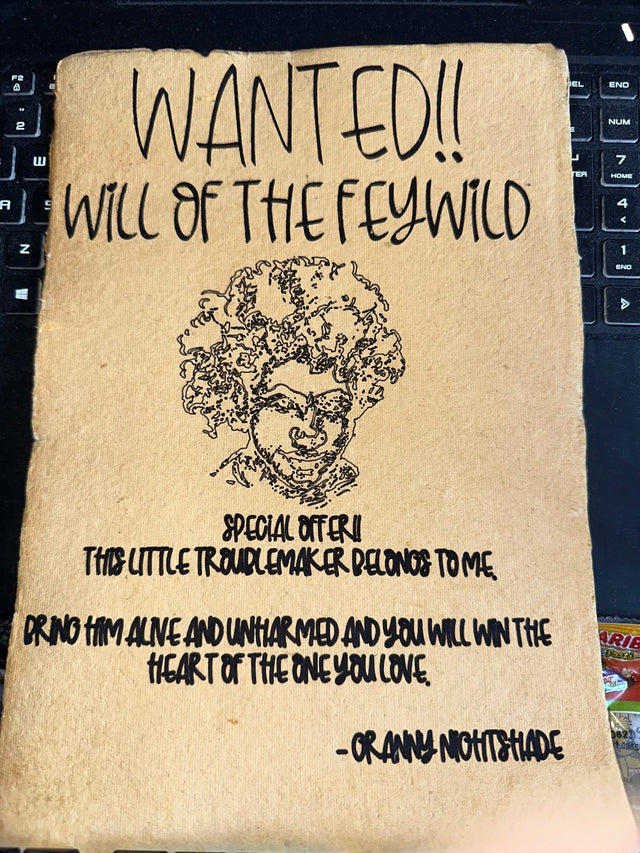 WANTED!!
WILL OF THE FEYWILD
SPECIAL OFFER!!
THIS LITTLE TROUBLEMAKER BELONGS TO ME.
BRING HIM ALIVE AND UNHARMED AND YOU WILL WIN THE
HEART OF THE ONE YOU LOVE.
- GRANNY NIGHTSHADE
F2
2
W
A
S
Z
END
NUM
7
HOME
4
<
1
END
ARIB